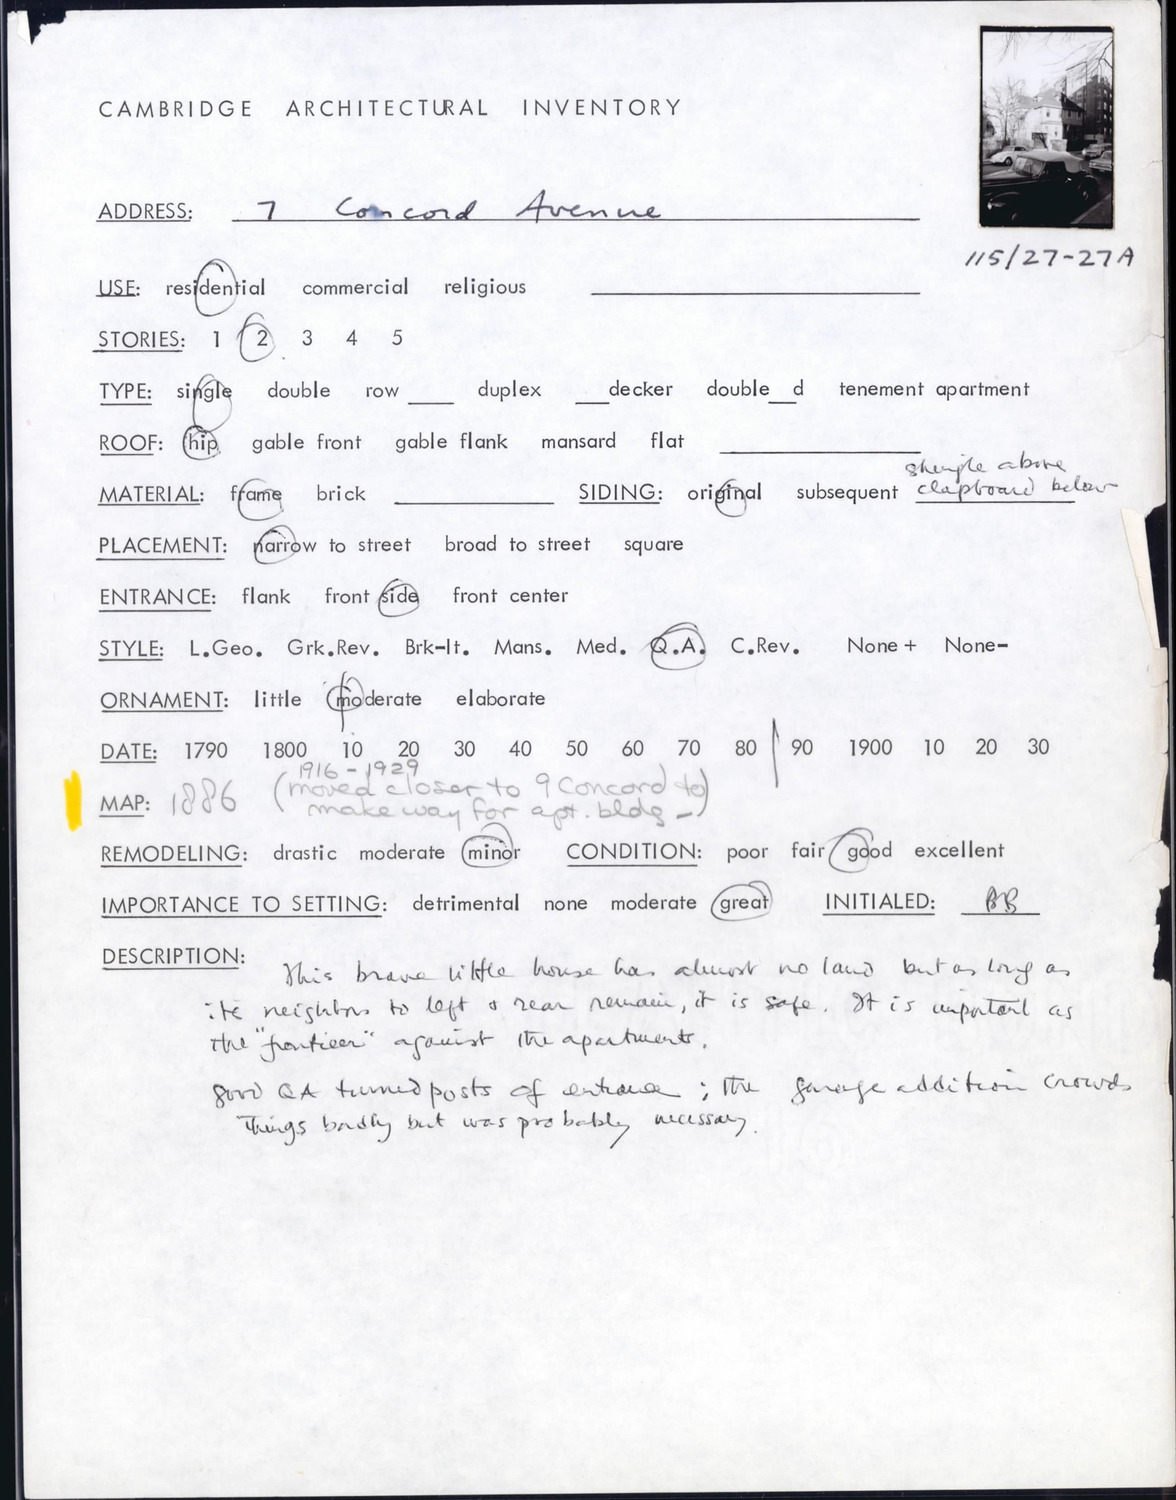 CAMBRIDGE ARCHITECTURAL INVENTORY
ADDRESS: 7 Concord Avenue
115/27-27A
USE: residential commercial religious
STORIES: 1 2 3 4 5
TYPE: single double row ___ duplex ___decker double__d tenement apartment
ROOF: hip gable front gable flank mansard flat
shingle above
MATERIAL: frame brick SIDING: original subsequent clapboard below
PLACEMENT: narrow to street broad to street square
ENTRANCE: flank front side front center
STYLE: L.Geo. Grk.Rev. Brk-It. Mans. Med. Q.A. C.Rev. None+ None-
ORNAMENT: little moderate elaborate
DATE: 1790 1800 10 20 30 40 50 60 70 80 90 1900 10 20 30
1916-1929
MAP: 1886 (moved closer to 9 Concord to
make way for apt. bldg-)
REMODELING: drastic moderate minor CONDITION: poor fair good excellent
IMPORTANCE TO SETTING: detrimental none moderate great INITIALED: BB
DESCRIPTION:
This brave little house has almost no land but as long as
its neighbors to left & rear remain, it is safe. It is important as
the "frontier" against the apartments.
good QA turned posts of entrance; the garage addition crowds
things badly but was probably necessary.